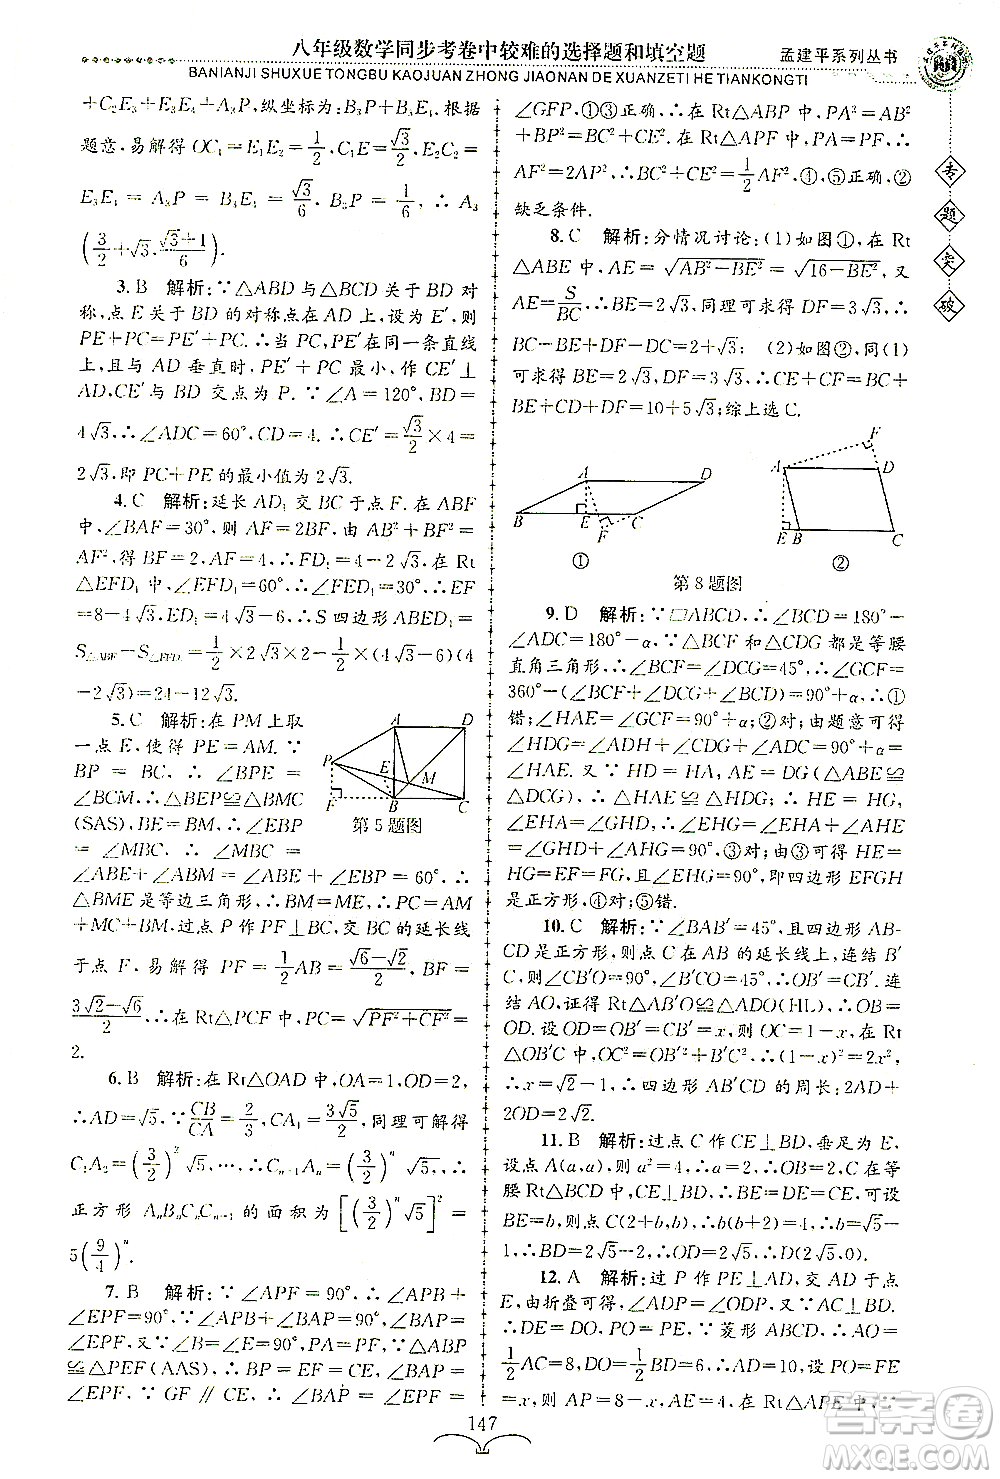 八年级数学同步考卷中较难的选择题和填空题
孟建平系列丛书
BANIANJI SHUXUE TONGBU KAOJUAN ZHONG JIAONAN DE XUANZETI HE TIANKONGTI
+C₂E₃+E₃E₄+A₃P, 纵坐标为: B₃P+A₃B₃. 根据
题意, 易解得 OC₁=E₁E₂=1/2, C₁E=√3/6, E₂C₂=
E₃E₄=A₃P=B₄E₃=√3/6. B₃P=1/2, ∴A₃
(3/2+√3, (√3+1)/6).
3. B 解析: ∵△ABD与△BCD关于BD对
称, 点E关于BD的对称点在AD上, 设为E′, 则
PE+PC=PE′+PC. ∴当PE′+PC在同一条直线
上, 且与AD垂直时, PE′+PC最小, 作CE′⊥
AD, CE′与BD交点为P. ∵∠A=120°, BD=
4√3, ∴∠ADC=60°, CD=4. ∴CE′=√3/2×4=
2√3, 即PC+PE的最小值为2√3.
4. C 解析: 延长AD₁交BC于点F. 在△ABF
中, ∠BAF=30°, 则AF=2BF. 由AB²+BF²=
AF², 得BF=2, AF=4. ∴FD₁=4-2√3. 在Rt
△EFD₁中, ∠EFD₁=60°, ∴∠FED₁=30°, ∴EF
=8-4√3, ED₁=4√3-6, ∴S四边形ABED₁=
S△ABF-S△EFD₁=1/2×2×2√3-1/2(4√3-6)(4
-2√3)=24-12√3.
5. C 解析: 在PM上取
一点E, 使得PE=AM. ∵
BP=BC, ∴∠BPE=
∠BCM, ∴△BEP≌△BMC
(SAS), BE=BM, ∴∠EBP
=∠MBC, ∴∠MBC+
∠ABE=∠ABE+∠EBP=60°, ∴
△BME是等边三角形, ∴BM=ME, ∴AM+BM
+MC=PC. 过点P作PF⊥BC交BC的延长线
于点F, 易得PF=1/2AB=(√6-√2)/2, CF=
(3√2-√6)/2. ∴在Rt△PCF中, PC=√(PF²+CF²)=
2.
A
D
P
E
M
F
B
C
第5题图
6. B 解析: 在Rt△OAD中, OA=1, OD=2,
∴AD=√5, ∵CB/CA=2/3, CA₁=3√5/2, 同理可解得
C₁A₂=(3/2)²√5, …, ∴Cₙ₋₁Aₙ=(3/2)ⁿ√5. ∴
正方形AₙBₙCₙCₙ₋₁的面积为[(3/2)ⁿ√5]²=
5(9/4)ⁿ.
7. B 解析: ∵∠APF=90°, ∴∠APB+
∠EPF=90°, ∵∠APB+∠BAP=90°, ∴∠BAP
=∠EPF. 又∵∠B=∠E=90°, PA=PF, ∴△ABP
≌△PEF(AAS). ∴BP=EF, ∠BAP=∠EPF,
AB=PE. ∵GF∥CE, ∴∠BAP=∠EPF=
∠GFP. ①③正确, ∴在Rt△ABP中, PA²=AB²
+BP²=BC²+CE². ∴Rt△APF中, PA=PF, ∴
AF²=2PA², ∴BC²+CE²=1/2AF². ④, ⑤正确, ②
缺乏条件.
8. C 解析: 分情况讨论: (1) 如图①, 在Rt
△ABE中, AE=√(AB²-BE²)=√(16-BE²), 又
AE=S/BC, ∴BE=2√3, 同理可求得DF=3√3, ∴
BC-BE+DF-DC=2+√3; (2) 如图②, 同(1)
可求得BE=2√3, DF=3√3, ∴CE+CF=BC+
BE+CD+DF=10+5√3; 综上选C.
A
D
B
E
F
C
①
F
A
D
E
B
C
②
第8题图
9. D 解析: ∵▱ABCD, ∴∠BCD=180°-
∠ADC=180°-α, ∵△BCF和△CDG都是等腰
直角三角形, ∴∠BCF=∠DCG=45°, ∴∠GCF=
360°-(∠BCF+∠DCG+∠BCD)=90°+α, ∴①
错; ∠HDG=∠GCF=90°+α; ②对; 由题意可得
∠HDG=∠ADH+∠GDC+∠ADC=90°+α=
∠HAE. 又∵HD=HA, AE=DG(∵△BAE≌
△CDG), ∴△HAE≌△HDG; ∴HE=HG,
∠EHA=∠GHD, ∴∠EHG=∠AHG+∠AHE
=∠GHD+∠AHG=90°, ③对; 由③可得HE=
HG, 同理可得HE=EF=FG=GH, 即四边形EFGH
是正方形, ④对; ⑤错.
10. C 解析: ∵∠BAB′=45°, ∠BAC=45°
(ABCD是正方形), 则点C在AB的延长线上, 连结B′
C, ∠CB′O=90°, ∠ACD=45°, ∴OB′=CB′. 连
结AO, 证得Rt△AB′O≌△ADO(HL), ∴OB=
OD. 设OD=OB′=CB′=x, 则OC=1-x, 在Rt
△OB′C中, OB′²+B′C²=OC², ∴(1-x)²=2x²,
∴x=√2-1, ∴四边形AB′OD的周长: 2AD+
2OD=2√2.
11. B 解析: 过点C作CE⊥BD, 垂足为E,
设点A(a, a), ∴a²=4, ∴a=2, ∴OB=2. 在等
腰Rt△BCD中, CE⊥BD, ∴BE=DE=CE. 设
BE=b, 则点C(2+b, b), ∴b(2+b)=4, ∴b=√5-
1, ∴BD=2√5-2, ∴OD=OB+BD=2√5.
12. A 解析: 过P作PE⊥AD, 交AD于点
E, 由折叠可得, ∠ADP=∠ODP, ∵AC⊥BD,
∴DE=DO, PO=PE, ∵菱形ABCD, ∴AO=
1/2AC=8, DO=1/2BD=6, ∴AD=10, 设PO=PE
=x, 则AP=8-x, AE=4, 在Rt△APE中, ∵
专
题
突
破
147
答案圈
MXQE.COM